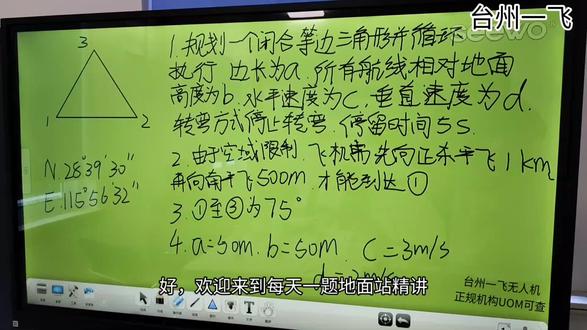 台州一飞
seewo
3
1
2
N.28°39′30″
E.115°56′32″
1.规划一个闭合等边三角形并循环
执行 边长为a.所有航线相对地面
高度为b.水平速度为c.垂直速度为d.
转弯方式停止转弯.停留时间5s.
2.由于空域限制.飞机需先向正东平飞1km
再向南平飞500m.才能到达①
3.①至③为75°
4.a=50m.b=50m. C=3m/s
d=2m/s
好，欢迎来到每天一题地面站精讲
台州一飞无人机
正规机构UOM可查